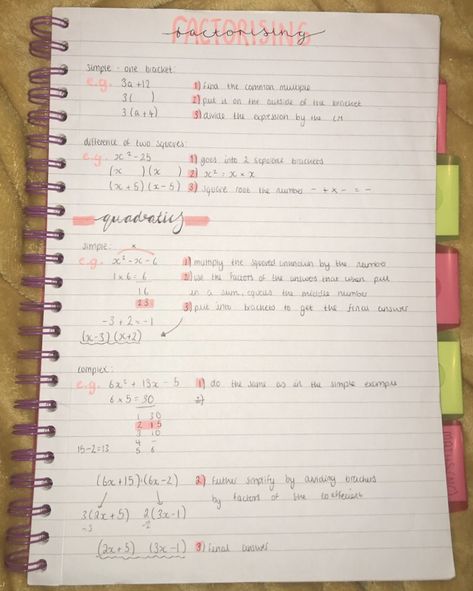 FACTORISING
factorising
simple - one bracket:
e.g. 3a + 12 1) find the common multiple
3( ) 2) put it on the outside of the bracket
3(a + 4) 3) divide the expression by the CM
difference of two squares:
e.g. x² - 25 1) goes into 2 separate brackets
(x )(x ) 2) x² = x × x
(x + 5)(x - 5) 3) square root the number - + × - = -
quadratics
simple: x
e.g. x² - x - 6 1) multiply the squared unknown by the number
1 × 6 = 6 2) use the factors of the answer that when put
1 6 in a sum, equals the middle number
2 3 3) put into brackets to get the final answer
-3 + 2 = -1
(x-3)(x+2)
complex:
e.g. 6x² + 13x - 5 1) do the same as in the simple example
6 × 5 = 30 2)
1 30
2 15
3 10
4 -
15-2=13 5 6
(6x+15)(6x-2) 2) further simplify by dividing brackets
by factors of the coefficient
3(2x+5) 2(3x-1)
÷3 ÷2
(2x+5) (3x-1) 3) final answer